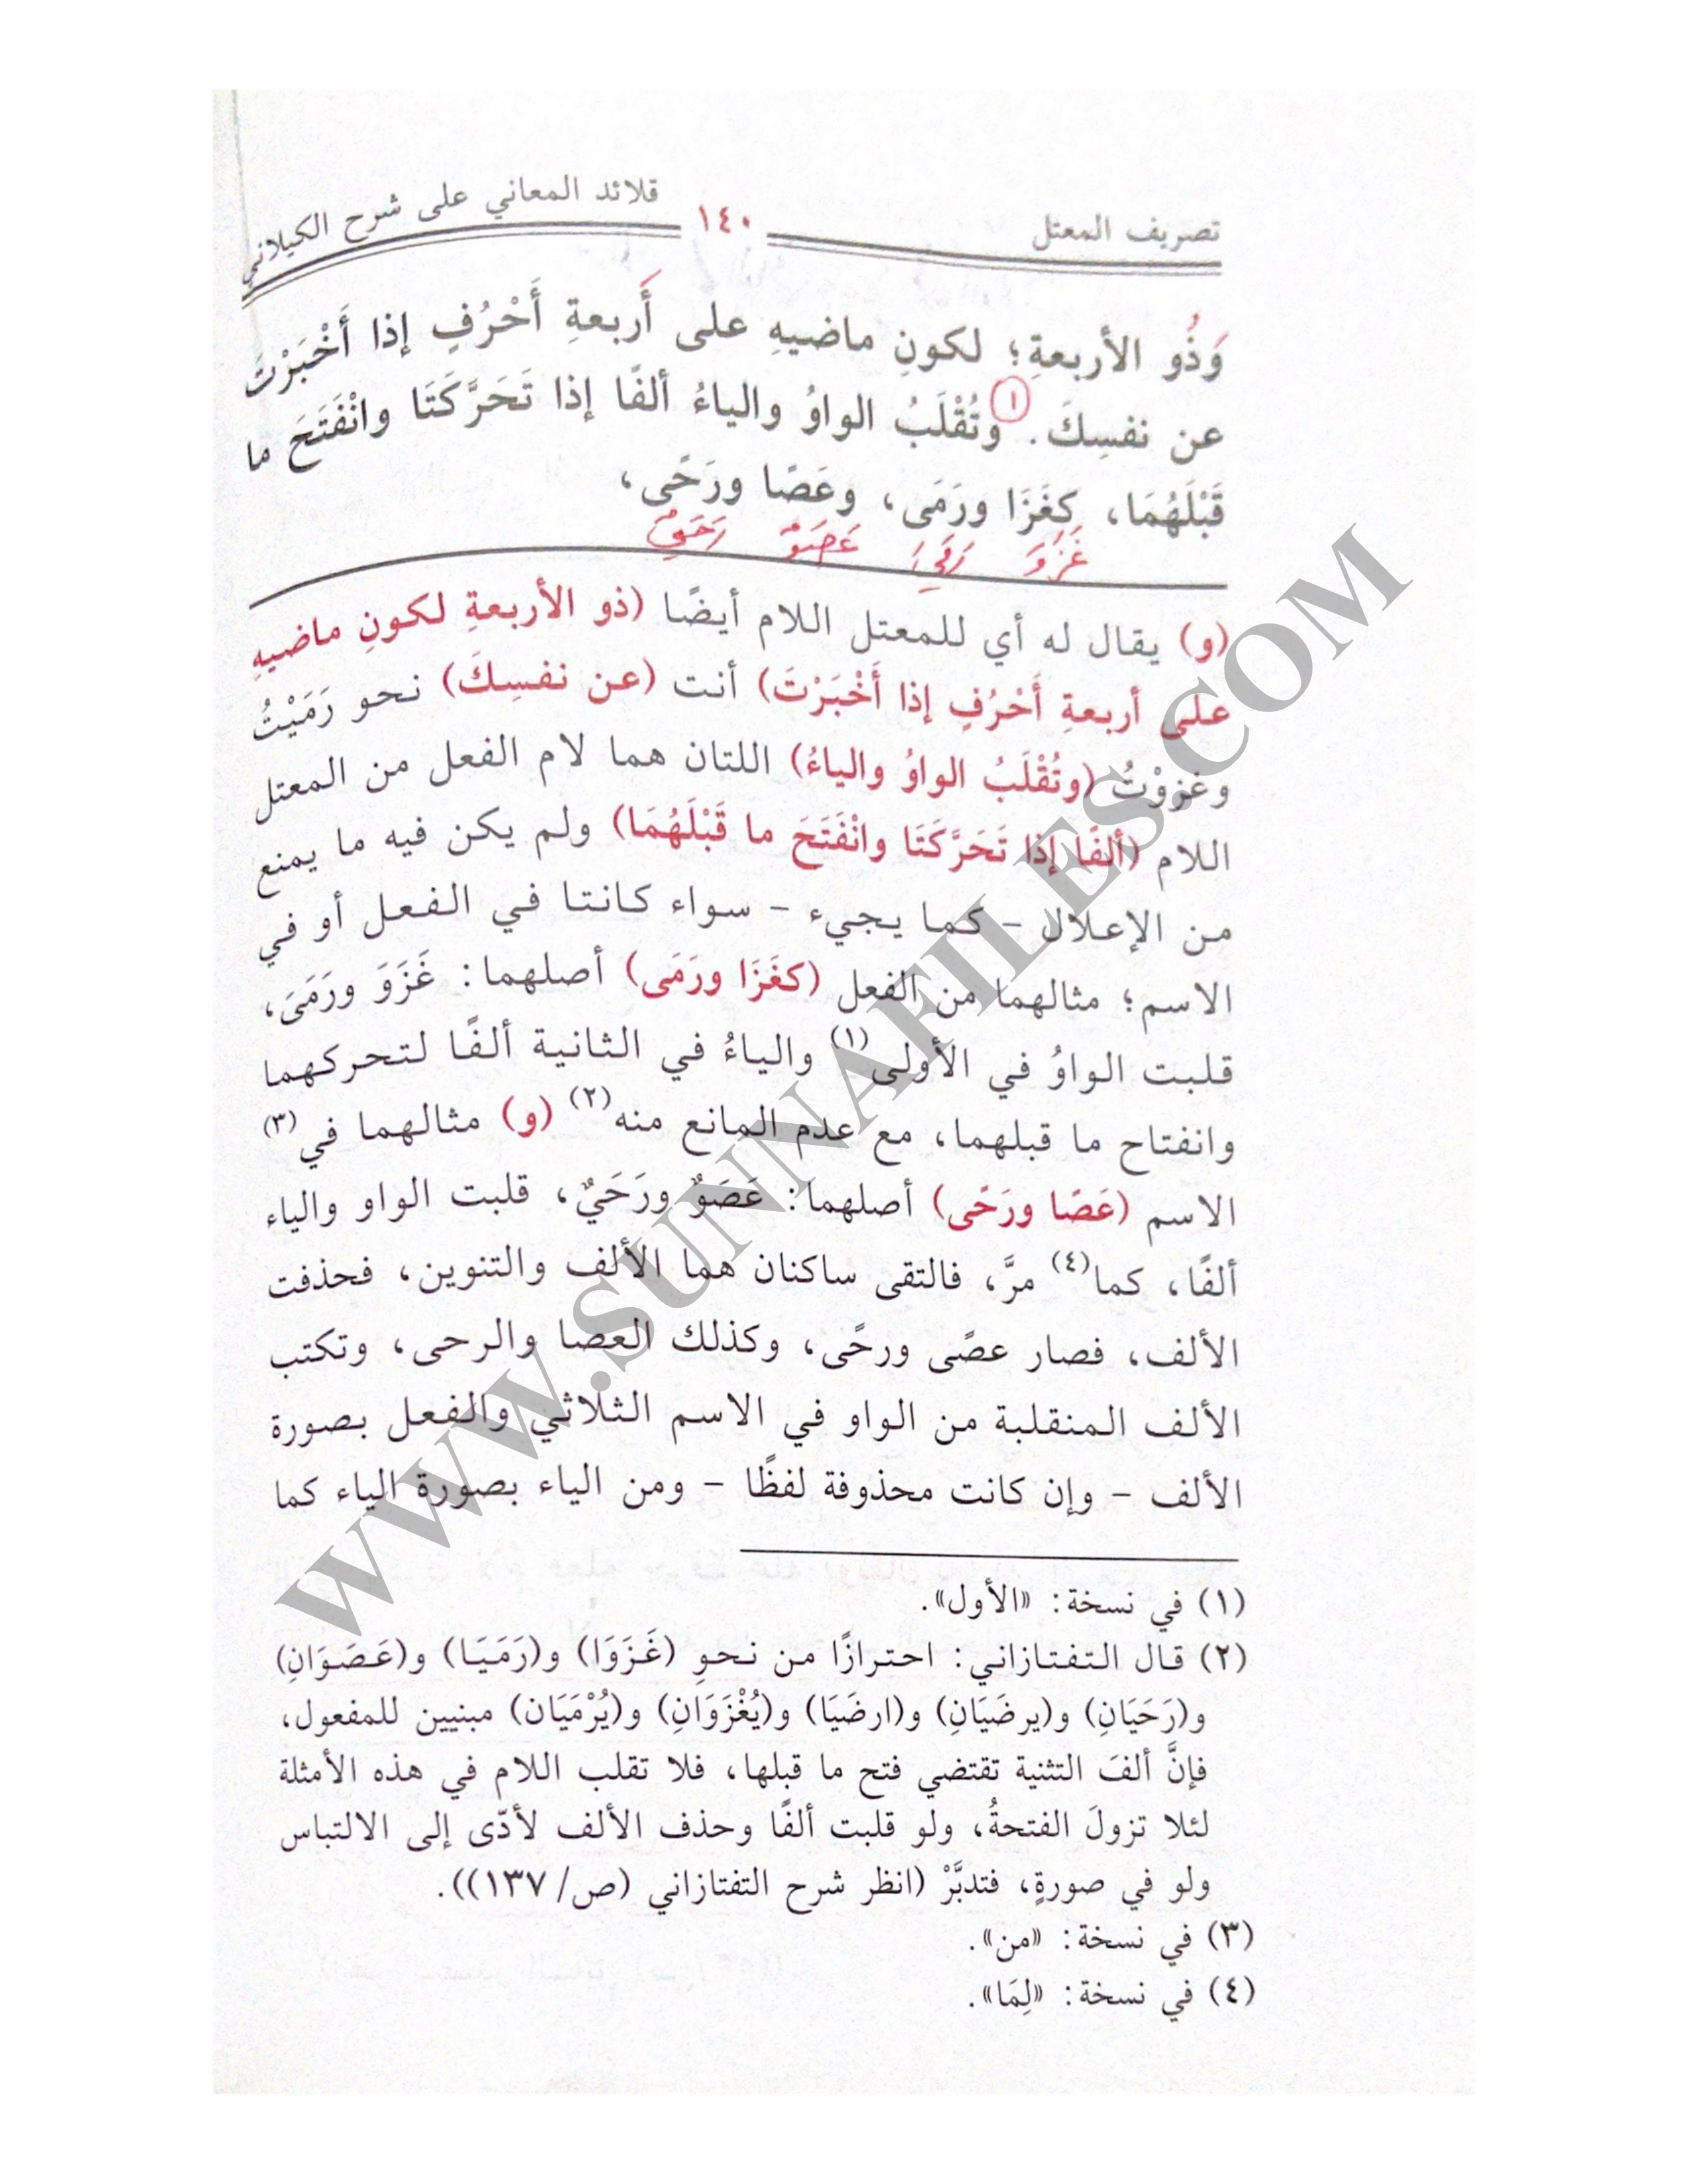 تصريف المعتل ١٤٠ قلائد المعاني على شرح الكيلاني
وَذُو الأربعةِ؛ لكونِ ماضيهِ على أَربعةِ أَحْرُفٍ إذا أَخْبَرْتَ
عن نفسِكَ. ١ وتُقْلَبُ الواوُ والياءُ ألفًا إذا تَحَرَّكَتَا وانْفَتَحَ ما
قَبْلَهُمَا، كغَزَا ورَمَى، وعَصًا ورَحًى،
غَزَوَ رَمَيَ عَصَوٌ رَحَيٌ
(و) يقال له أي للمعتل اللام أيضًا (ذو الأربعةِ لكونِ ماضيهِ
على أربعةِ أَحْرُفٍ إذا أَخْبَرْتَ) أنت (عن نفسِكَ) نحو رَمَيْتُ
وغزوْتُ (وتُقْلَبُ الواوُ والياءُ) اللتان هما لام الفعل من المعتل
اللام (ألفًا إذا تَحَرَّكَتَا وانْفَتَحَ ما قَبْلَهُمَا) ولم يكن فيه ما يمنع
من الإعلال – كما يجيء – سواء كانتا في الفعل أو في
الاسم؛ مثالهما من الفعل (كغَزَا ورَمَى) أصلهما: غَزَوَ ورَمَىَ،
قلبت الواوُ في الأولى(١) والياءُ في الثانية ألفًا لتحركهما
وانفتاح ما قبلهما، مع عدم المانع منه(٢) (و) مثالهما في(٣)
الاسم (عَصًا ورَحًى) أصلهما: عَصَوٌ ورَحَيٌ، قلبت الواو والياء
ألفًا، كما(٤) مرَّ، فالتقى ساكنان هما الألف والتنوين، فحذفت
الألف، فصار عصًى ورحًى، وكذلك العصا والرحى، وتكتب
الألف المنقلبة من الواو في الاسم الثلاثي والفعل بصورة
الألف – وإن كانت محذوفة لفظًا – ومن الياء بصورة الياء كما
(١) في نسخة: «الأول».
(٢) قال التفتازاني: احترازًا من نحوِ (غَزَوَا) و(رَمَيَا) و(عَصَوَانِ)
و(رَحَيَانِ) و(يرضَيَانِ) و(ارضَيَا) و(يُغْزَوَانِ) و(يُرْمَيَان) مبنيين للمفعول،
فإنَّ ألفَ التثنية تقتضي فتح ما قبلها، فلا تقلب اللام في هذه الأمثلة
لئلا تزولَ الفتحةُ، ولو قلبت ألفًا وحذف الألف لأدّى إلى الالتباس
ولو في صورةٍ، فتدبَّرْ (انظر شرح التفتازاني (ص/ ١٣٧)).
(٣) في نسخة: «من».
(٤) في نسخة: «لِمَا».
WWW.SUNNAFILES.COM